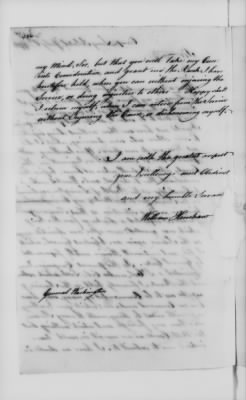 my Mind, Sir, but that you will take my Case
into Consideration, and grant me the Rank I have
heretofore held, when you can without injuring the
Service, or doing injustice to others. Happy shall
I esteem myself, when I can retire from the Service
without Injuring the Cause, or dishonouring myself.
I am with the greatest respect
your Excellency's most Obedient
and very humble Servant
William
General Washington